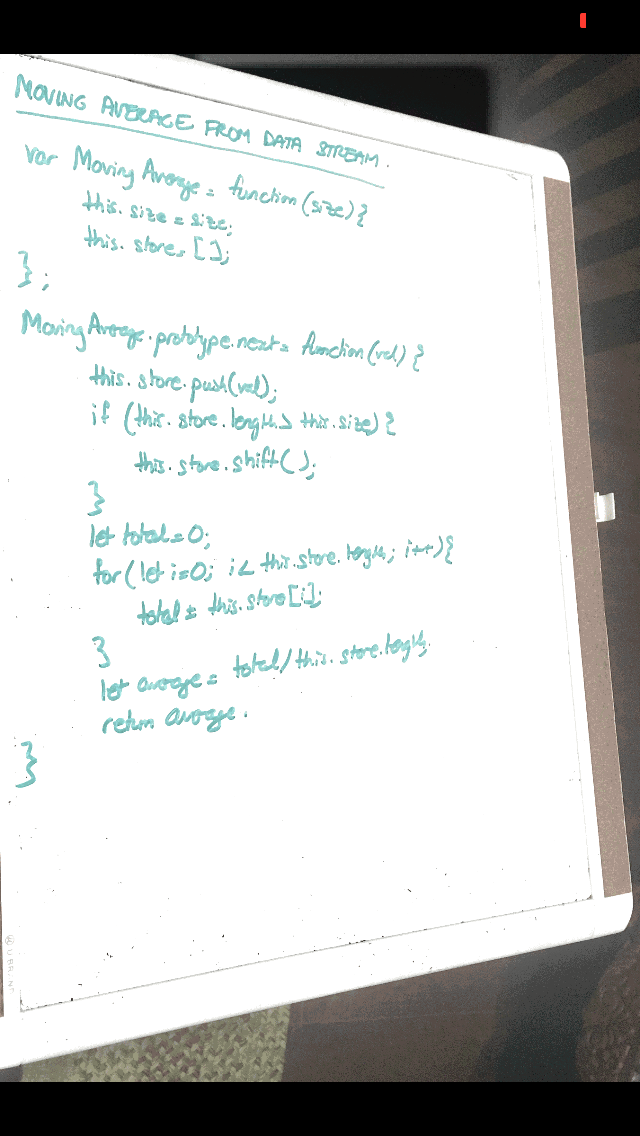 MOVING AVERAGE FROM DATA STREAM.
var Moving Average = function(size){
this.size = size;
this.store = [];
};
MovingAverage.prototype.next = function(val) {
this.store.push(val);
if (this.store.length > this.size) {
this.store.shift();
}
let total = 0;
for(let i=0; i < this.store.length; i++){
total += this.store[i];
}
let average = total/this.store.length;
return average.
}